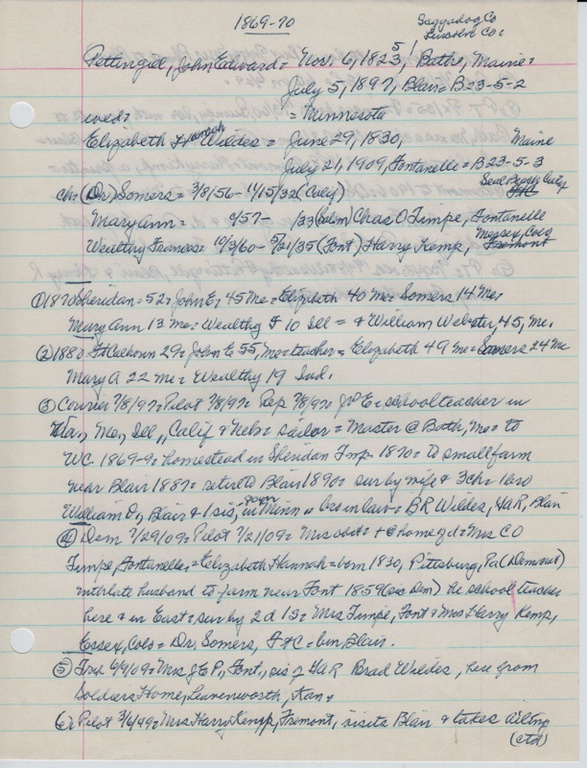 1869-70
Saggadog Co
Lincoln Co:
Pettingill, John Edward = Nov. 6, 1823, 5/ Bathe, Maine=
July 5, 1897, Blair = B23-5-2
wed: = Minnesota
Elizabeth Hannah Wildes = June 29, 1830, Maine
July 21, 1909, Fontanelle = B23-5-3
ch: (Dr) Somers = 3/8/56 - 11/15/32 (Calif) Seal Beach Calif
Mary Ann = 4/57- /33 (Salem) Chas O Timpe, Fontanelle
Wealthy Frances = 10/3/60 - 5/21/35 (Font) Harry Kemp, Essex, Colo Fremont
(1) 1870 Sheridan = 52 = John E, 45 Me = Elizabeth 40 Me = Somers 14 Me =
Mary Ann 13 Me = Wealthy F 10 Ill = & William Webster, 45, Me.
(2) 1880 Ft Calhoun 29 = John E 55, Me = teacher = Elizabeth 49 Me = Somers 24 Me
Mary A 22 Me = Wealthy 19 Ind.
(3) Courier 7/8/97 = Pilot 7/8/97 = Rep 7/8/97 = J E = school teacher in
Me, Ill, Calif & Neb = sailor = Master @ Bath, Me = to
WC 1869-9 = homestead in Sheridan Tmp 1870 = to small farm
near Blair 1887 = retire to Blair 1890 = sur by wife & 3 ch = 1 bro
William D, Blair & 1 sis, in Minn = bro in law = BR Wildes, GAR, Blair
(4) Dem 7/29/09 = Pilot 7/21/09 = Mrs obit = + @ home of d = Mrs CO
Timpe, Fontanelle = Elizabeth Hannah = born 1830, Pittsburg, Pa (Demount)
with late husband to farm near Font 1859 (sic Dem) he school teacher
here & in East = sur by 2 d 1 s = Mrs Timpe, Font & Mrs Harry Kemp,
Essex, Colo = Dr. Somers, Ft C = bur Blair.
(5) Trib 6/9/09 = Mrs J E P, Font, sis of GAR Brad Wildes, here from
Soldiers Home, Leavenworth, Kan.
(6) Pilot 3/6/49 = Mrs Harry Kemp, Fremont, visits Blair & takes ailing
(ctd)